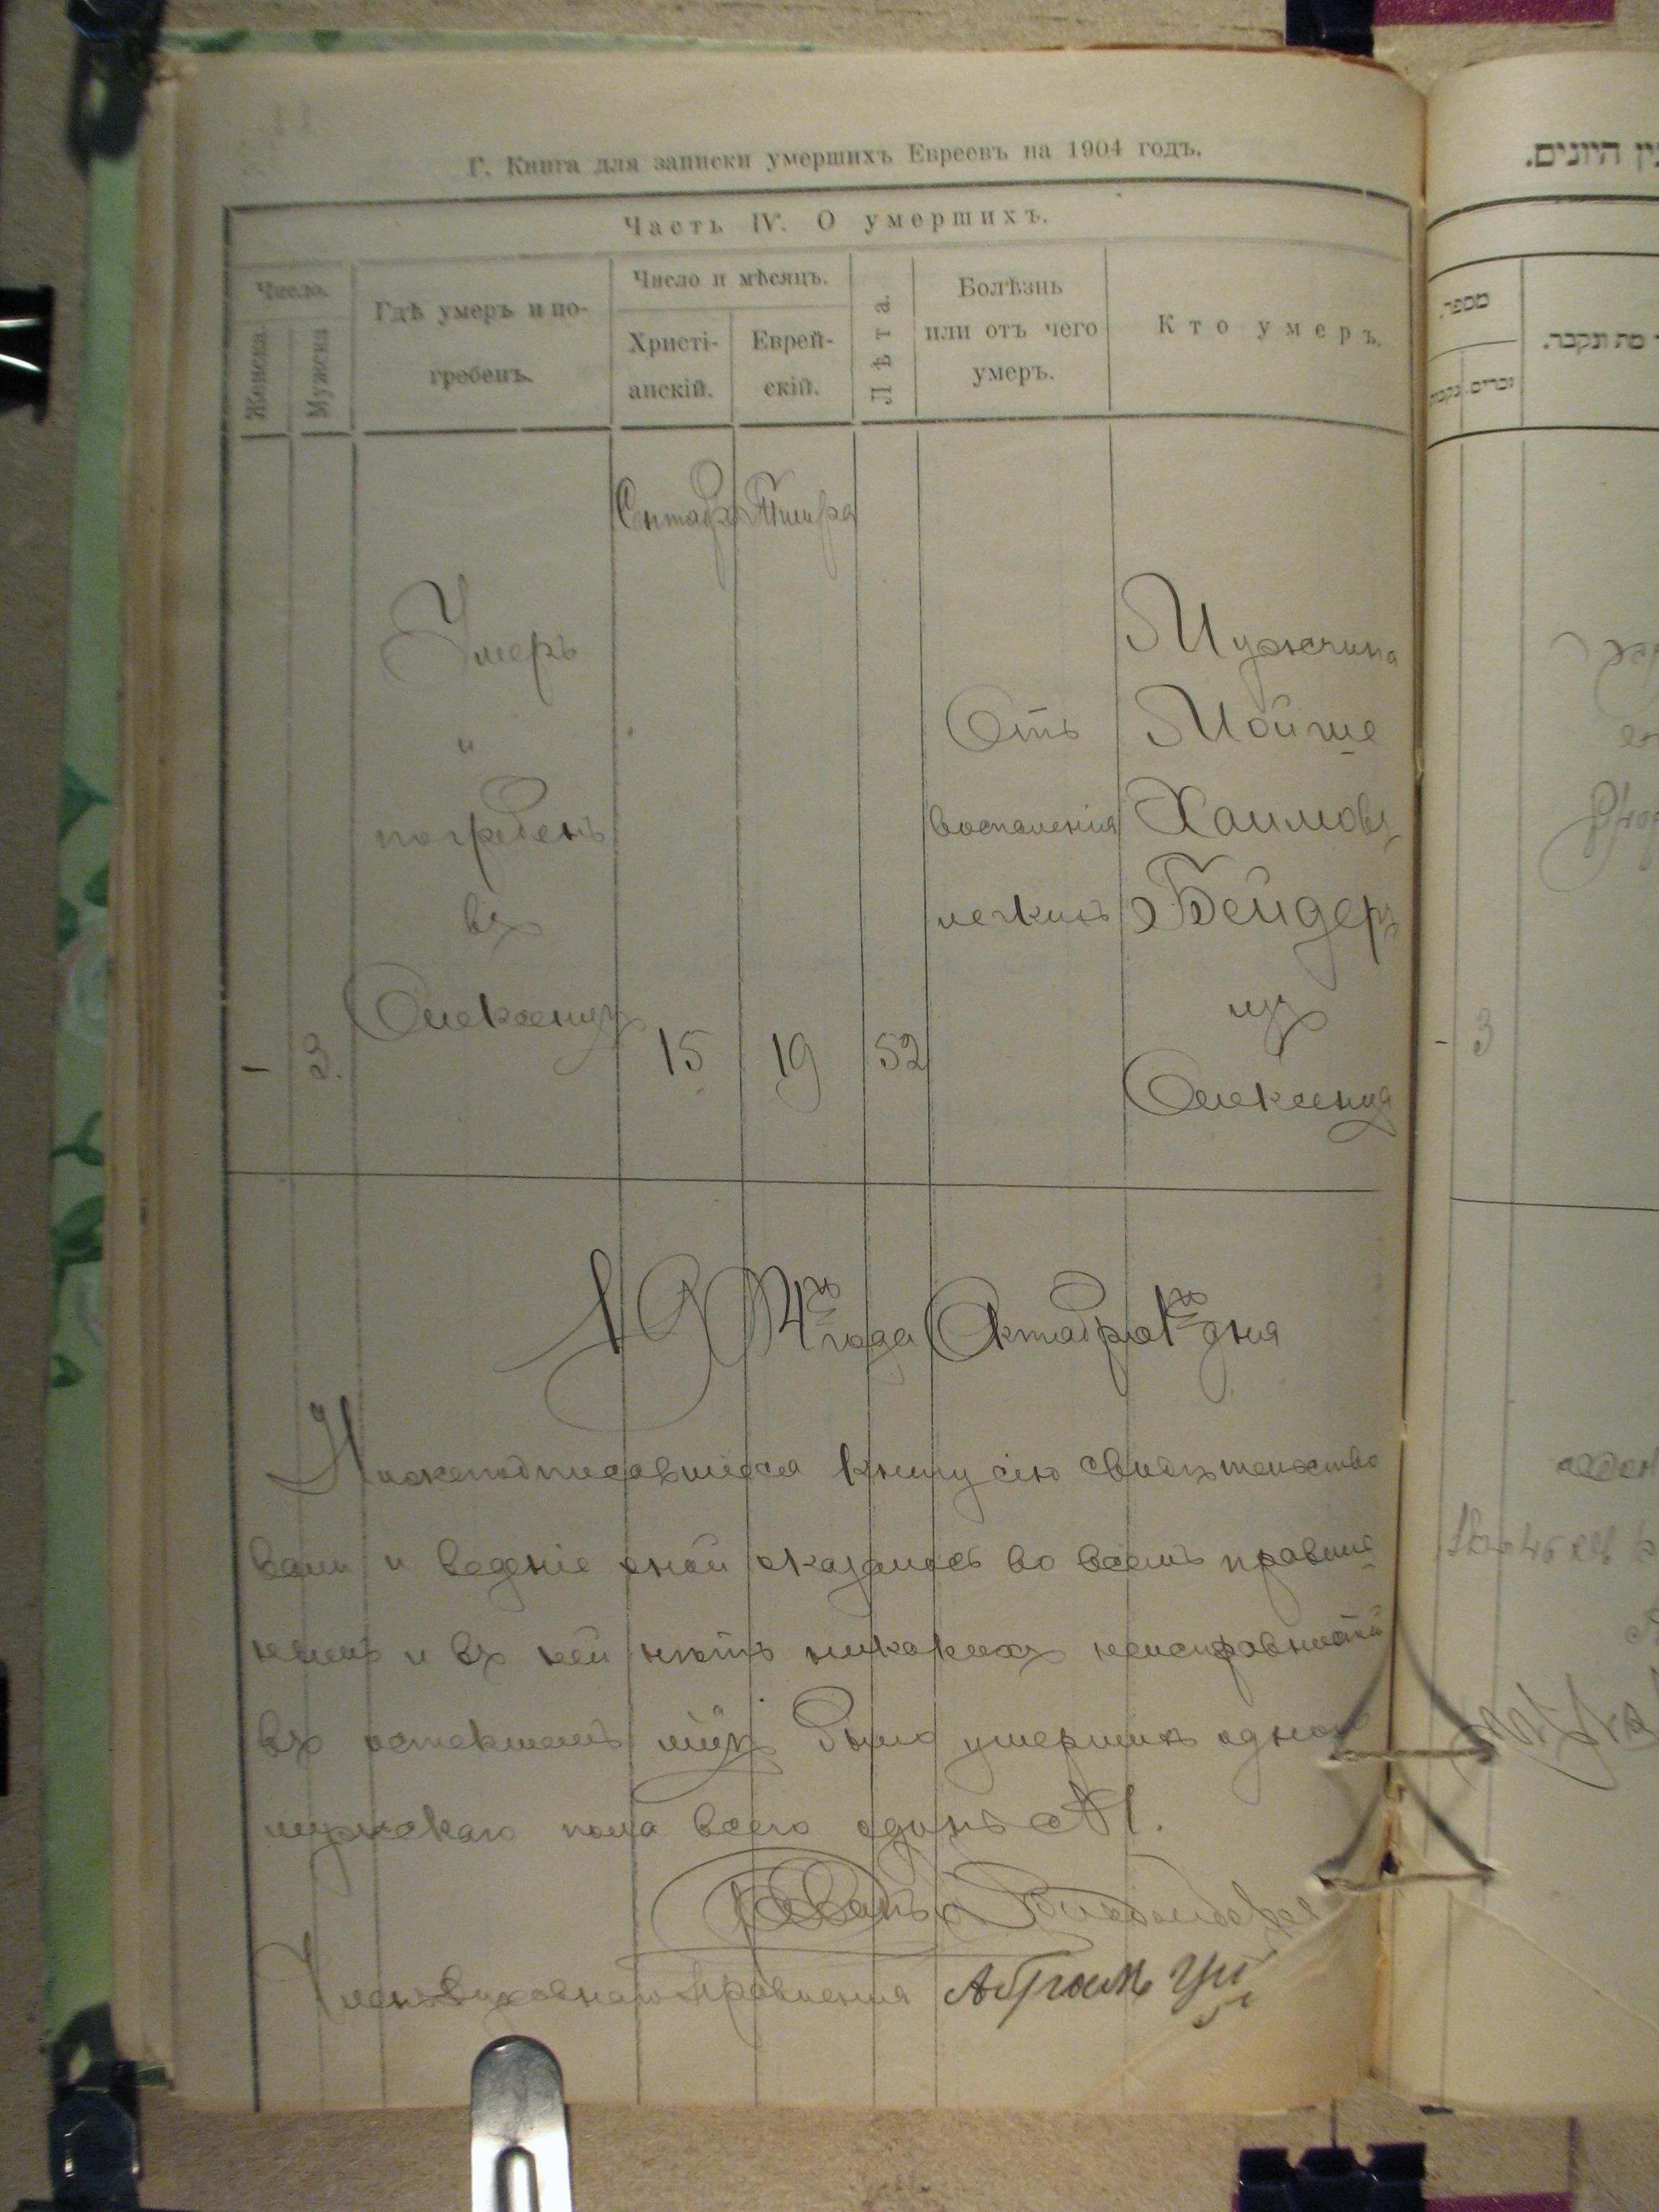 Г. Книга для записки умершихъ Евреевъ на 1904 годъ.
Часть IV. О умершихъ.
Число.
Женска
Мужска
Гдѣ умеръ и по-
гребенъ.
Число и мѣсяцъ.
Христі-
анскій.
Еврей-
скій.
Лѣта.
Болѣзнь
или отъ чего
умеръ.
Кто умеръ.
Умеръ
и
погребенъ
въ
– 3.
15
19
52
Отъ
воспаленія
легкихъ
Мужчина
Мойше
Хаимовъ
Бейдеръ
изъ
1904го года Октября 1го дня
Нижеподписавшіеся книгу сію свидѣтельство
вали и веденіе оной оказалось во всемъ правиль
нымъ и въ ней нѣтъ никакихъ неисправностей
въ истекшемъ м-цѣ было умершихъ одного
мужскаго пола всего одинъ №1.
Членъ Духовнаго Правленія
היונים.
מספר.
זכרים.
מת ונקבר.
– 3